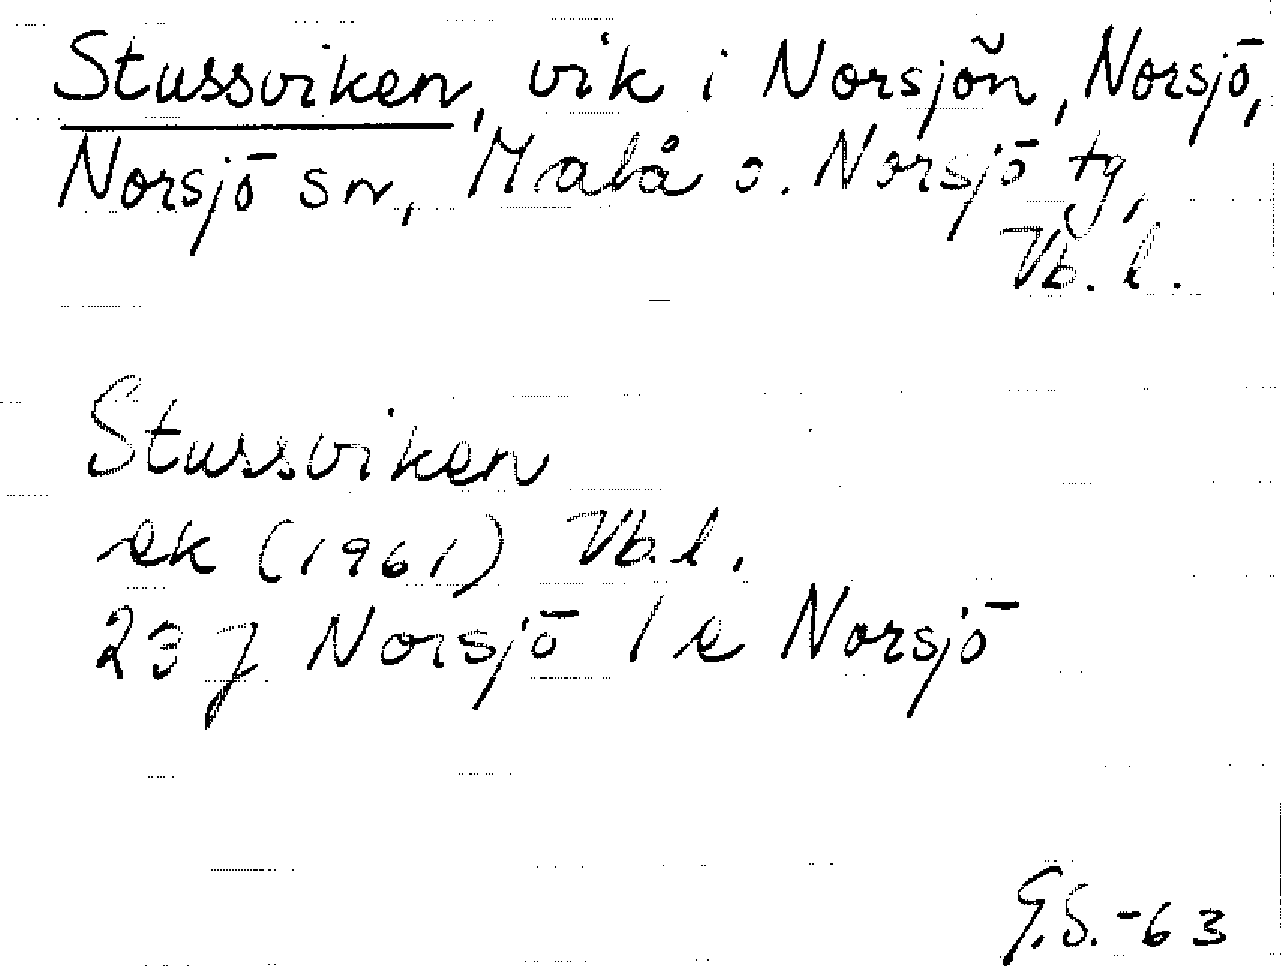 Stussviken, vik i Norsjön, Norsjö,
Norsjö sn, Malå o. Norsjö tg,
Vb. l.
Stussviken
ek (1961) Vb. l.
23 J Norsjö 1 e Norsjö
G.S. -63